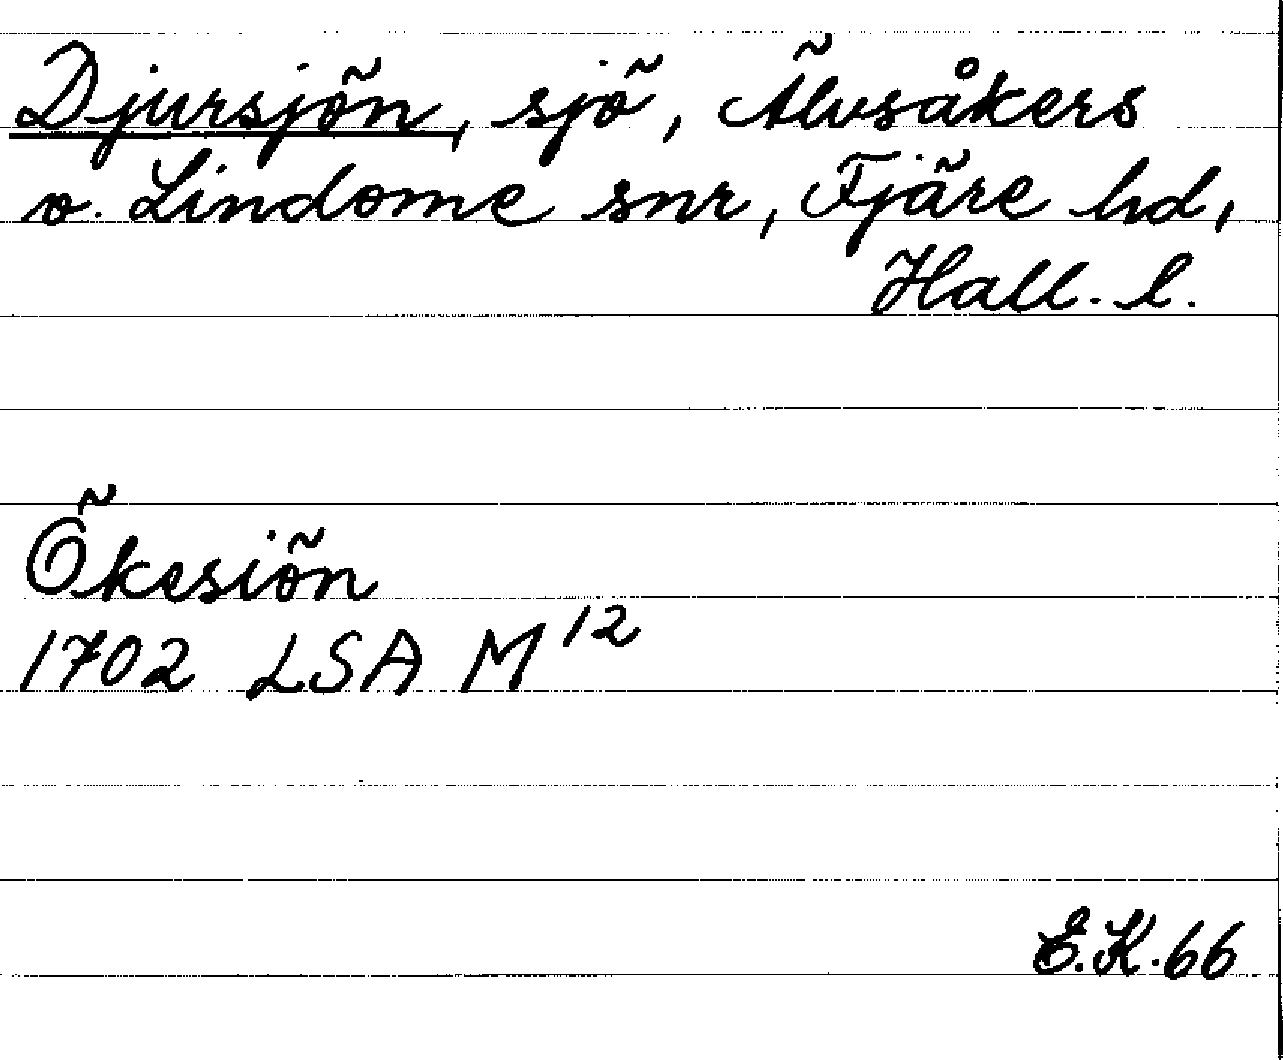 Djursjön, sjö, Älvsåkers
o. Lindome snr, Fjäre hd,
Hall. l.
Ökesiön
1702 LSA M 12
E.K. 66